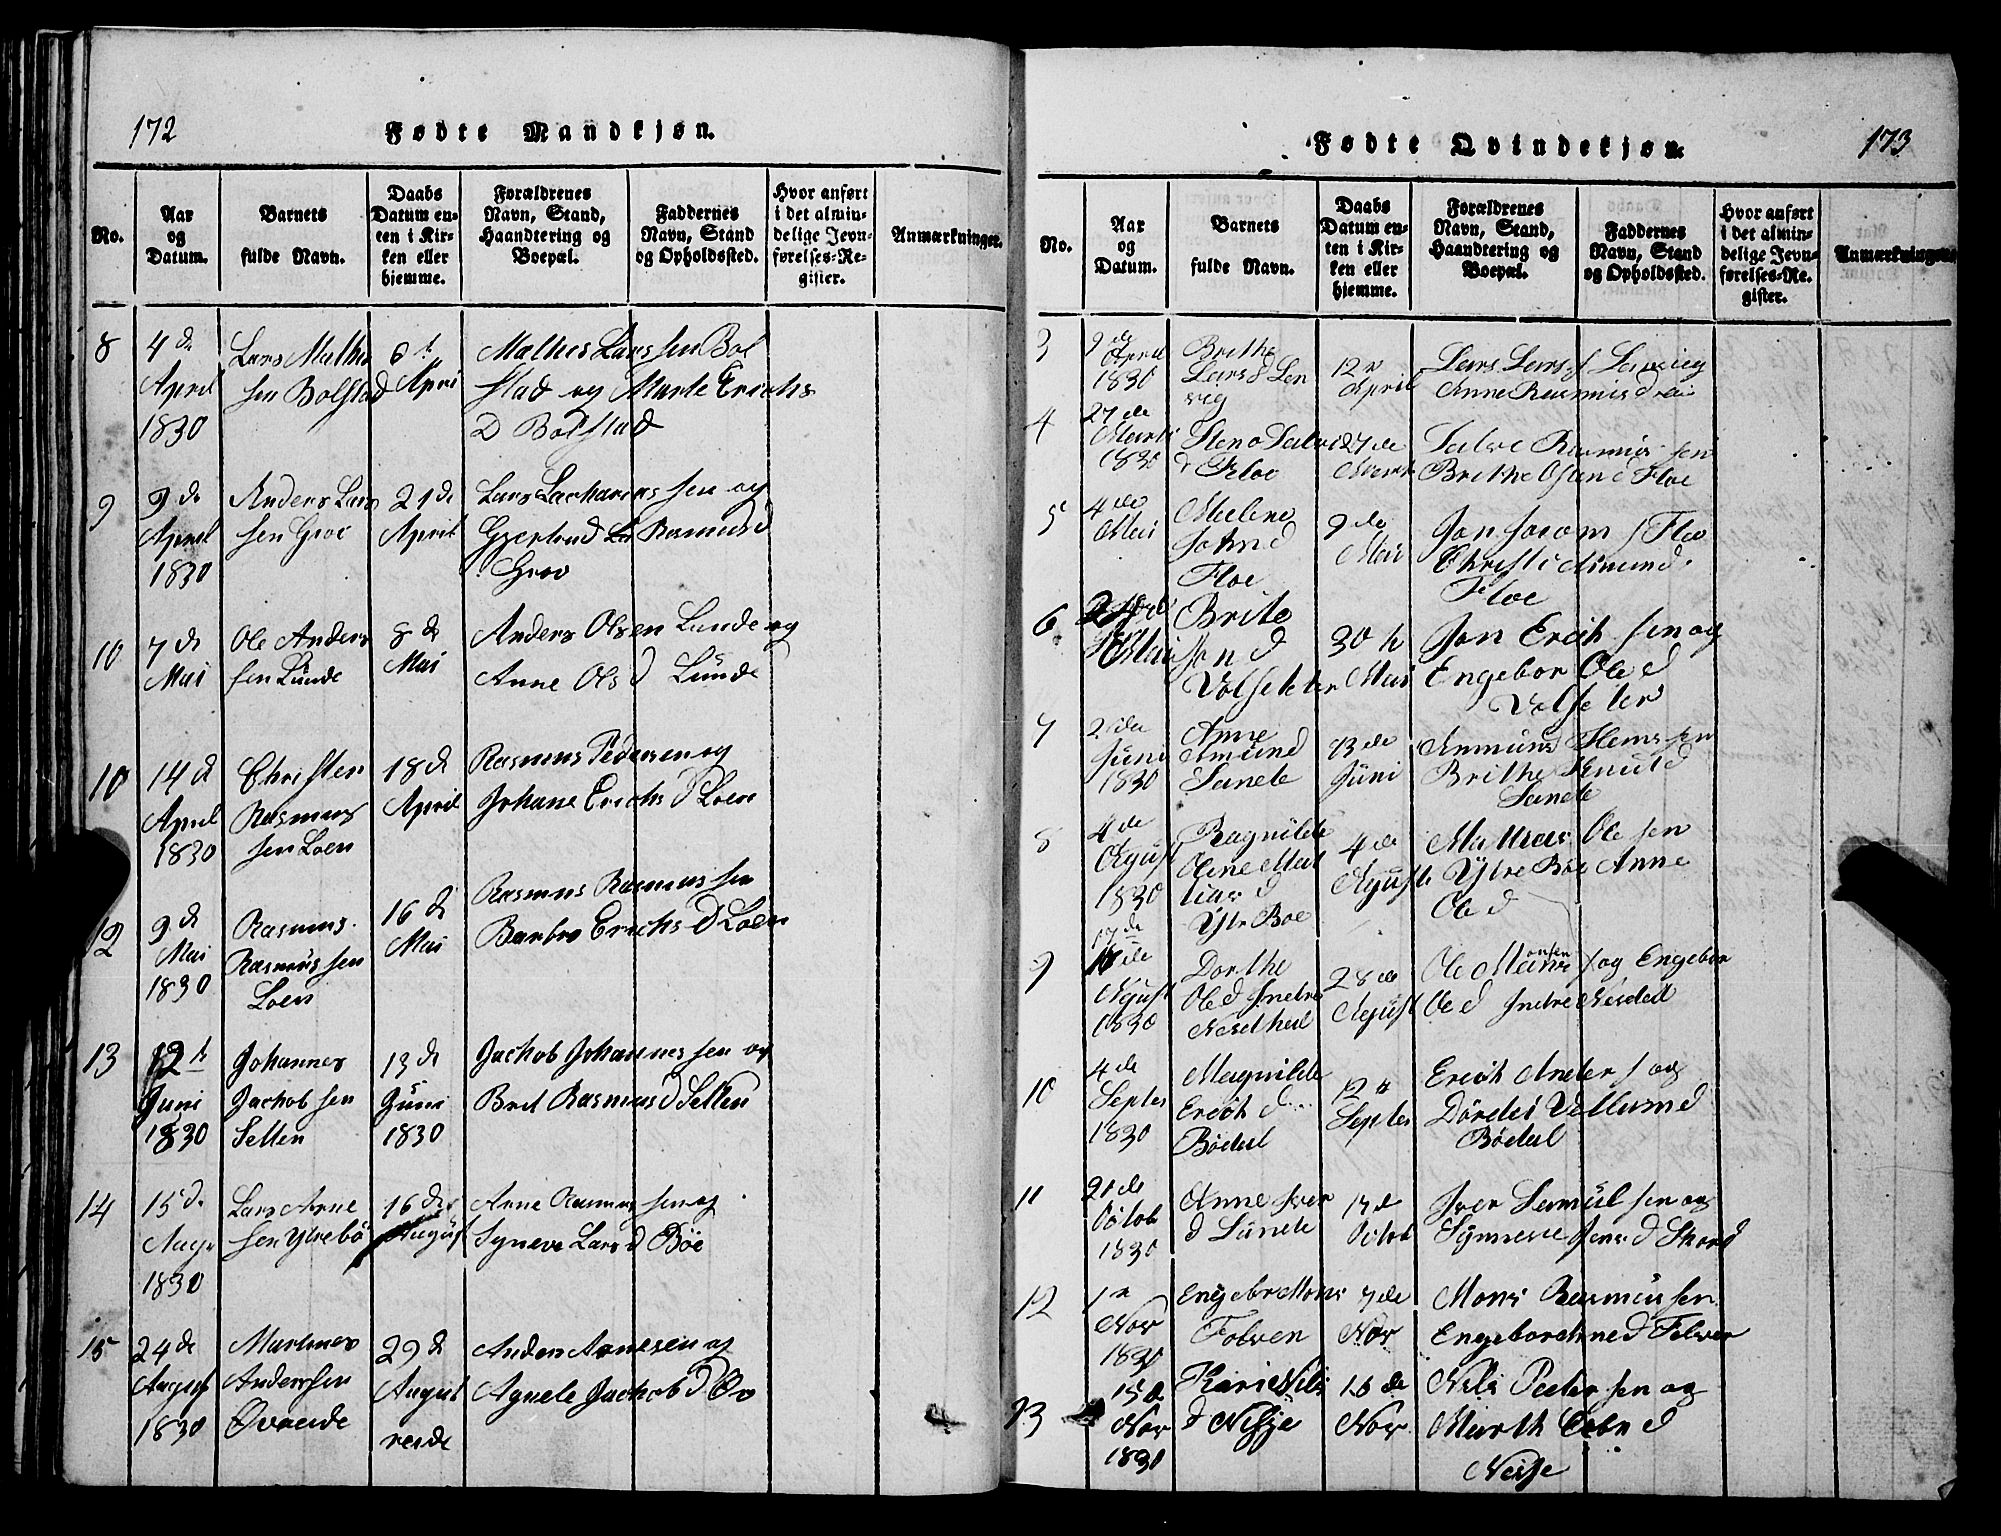 172
Fødte Mandkjøn.
No.
Aar
og
Datum.
Barnets
fulde Navn.
Daabs
Datum en-
ten i Kir-
ken eller
hjemme.
Forældrenes
Navn, Stand,
Haandtering og
Boepæl.
Faddernes
Navn, Stand
og Opholdssted.
Hvor anført
i det almin-
delige Jevn-
førelses-Re-
gister.
Anmærkninger.
8
4 de
April
1830
Lars Mathis
sen Bolstad
April
Mathes Lars sen Bol
stad og Marte Erichs
D Bolstad
9
9 de
April
1830
Anders Lars
sen Grov
21 de
April
Lars Zacharias sen og
Gjertrud Rasmus d
Grov
10
7 de
Mai
Ole Anders
sen Lunde
8 d
Mai
Anders Olsen Lunde og
Anne Ols d Lunde
10
14 d
April
1830
Christen
Rasmus
sen Loen
18 d
April
Rasmus Pedersen og
Johane Erichs D Loen
12
9 de
Mai
1830
Rasmus
Rasmus sen
Loen
16 d
Mai
Rasmus Rasmus sen
Barbro Erichs D Loen
13
12 h
Juni
1830
Johannes
Jachob sen
Setten
13 d
Juni
1830
Jachob Johannes sen og
Brit Rasmus d Setten
14
15 d
Augs
1830
Lars Arne
sen Ytrebö
16 de
August
Arne Rasmus sen og
Syneve Lars d Böe
15
24 de
August
1830
Martines
Anderssen
Øvreeide
29 d
August
Anders Arnesen og
Agnete Jachob d Øv
reeide
173
Fødte Qvindekjøn.
No.
Aar
og
Datum.
Barnets
fulde Navn.
Daabs
Datum en-
ten i Kir-
ken eller
hjemme.
Forældrenes
Navn, Stand,
Haandtering og
Boepæl.
Faddernes
Navn, Stand
og Opholdssted.
Hvor anført
i det almin-
delige Jevn-
førelses-Re-
gister.
Anmærkninger.
3
9 de
April
1830
Brithe
Lars d Len
vig
12
April
Lars Lars s Lenvig
Anne Rasmus d
4
27 de
Marti
1830
d Floe
27 de
Rasmus sen
Brithe Olsen d Floe
5
4 de
Mai
John d
Floe
9 de
Mai
s Floe
Christi Amund
Floe
6
Mai
Brite
Jon d
Volseter
30 h
Mai
Jon Erich sen og
Engebor Ole d
Volseter
7
2 de
Juni
1830
Anne
Amund
Sande
13 de
Juni
Ammund Stens sen
Brithe Knut d
Sande
8
4 de
Agust
1830
Ragnilde
Olene Mat
tias d
Ytr Boe
4 de
Agust
Mattias Ole sen
Ytre Boe Anne
Ole d
9
17 de
Agust
1830
Dorthe
Ole d Indre
Nesdhal
28 de
Agust
Ole Mons s og Engebor
Ole d Indre Nesdal
10
4 de
Septes
1830
Magnilde
Erich d
Bödal
12
Septes
Erich Ander s og
Dördei d
Bödal
11
21 de
Octob
1830
Anne Iver
d Sunde
Octob
Iver Samul sen og
Synneve Jens d Skord
12
1
Nov
1830
Engebr Mons
Folven
7 de
Nov
Mons Rasmus sen
d Folven
13
15 de
Nov
1830
Kari Nils
d Nesje
16 de
Nov
Nils Peder sen og
Marth d
Nesje